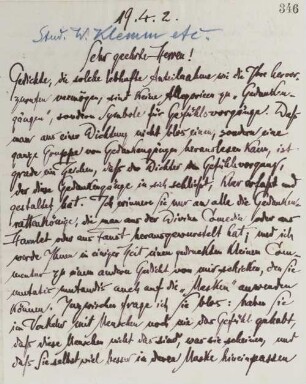 346
19. 4. 2.
Stud. W. Klemm etc.
Sehr geehrte Herren!
Gedichte, die solche lebhafte Anteilnahme wie die Ihre hervor-
zurufen vermögen, sind keine Allegorieen zu „Gedanken-
gängen", sondern Symbole für Gefühlsvorgänge! Dass
man aus einer Dichtung nicht blos einen, sondern eine
ganze Gruppe von Gedankengängen herauslesen kann, ist
grade ein Zeichen, dass der Dichter den Gefühlsvorgang,
der diese Gedankengänge in sich schließt, klar erfasst und
gestaltet hat. Ich erinnere Sie nur an alle die Gedanken-
rattenkönige, die man aus der Divina Comedia oder aus
Hamlet oder aus Faust herausgewurstelt hat; und ich
werde Ihnen in einiger Zeit einen gedruckten kleinen Com-
mentar zu einem andern Gedicht von mir schicken, den Sie
mutatis mutandis auch auf die „Masken" anwenden
können. Inzwischen frage ich Sie blos: haben Sie
im Verkehr mit Menschen noch nie das Gefühl gehabt,
dass diese Menschen nicht das sind, was sie scheinen, und
dass Sie selbst viel besser in deren Maske hineinpassen